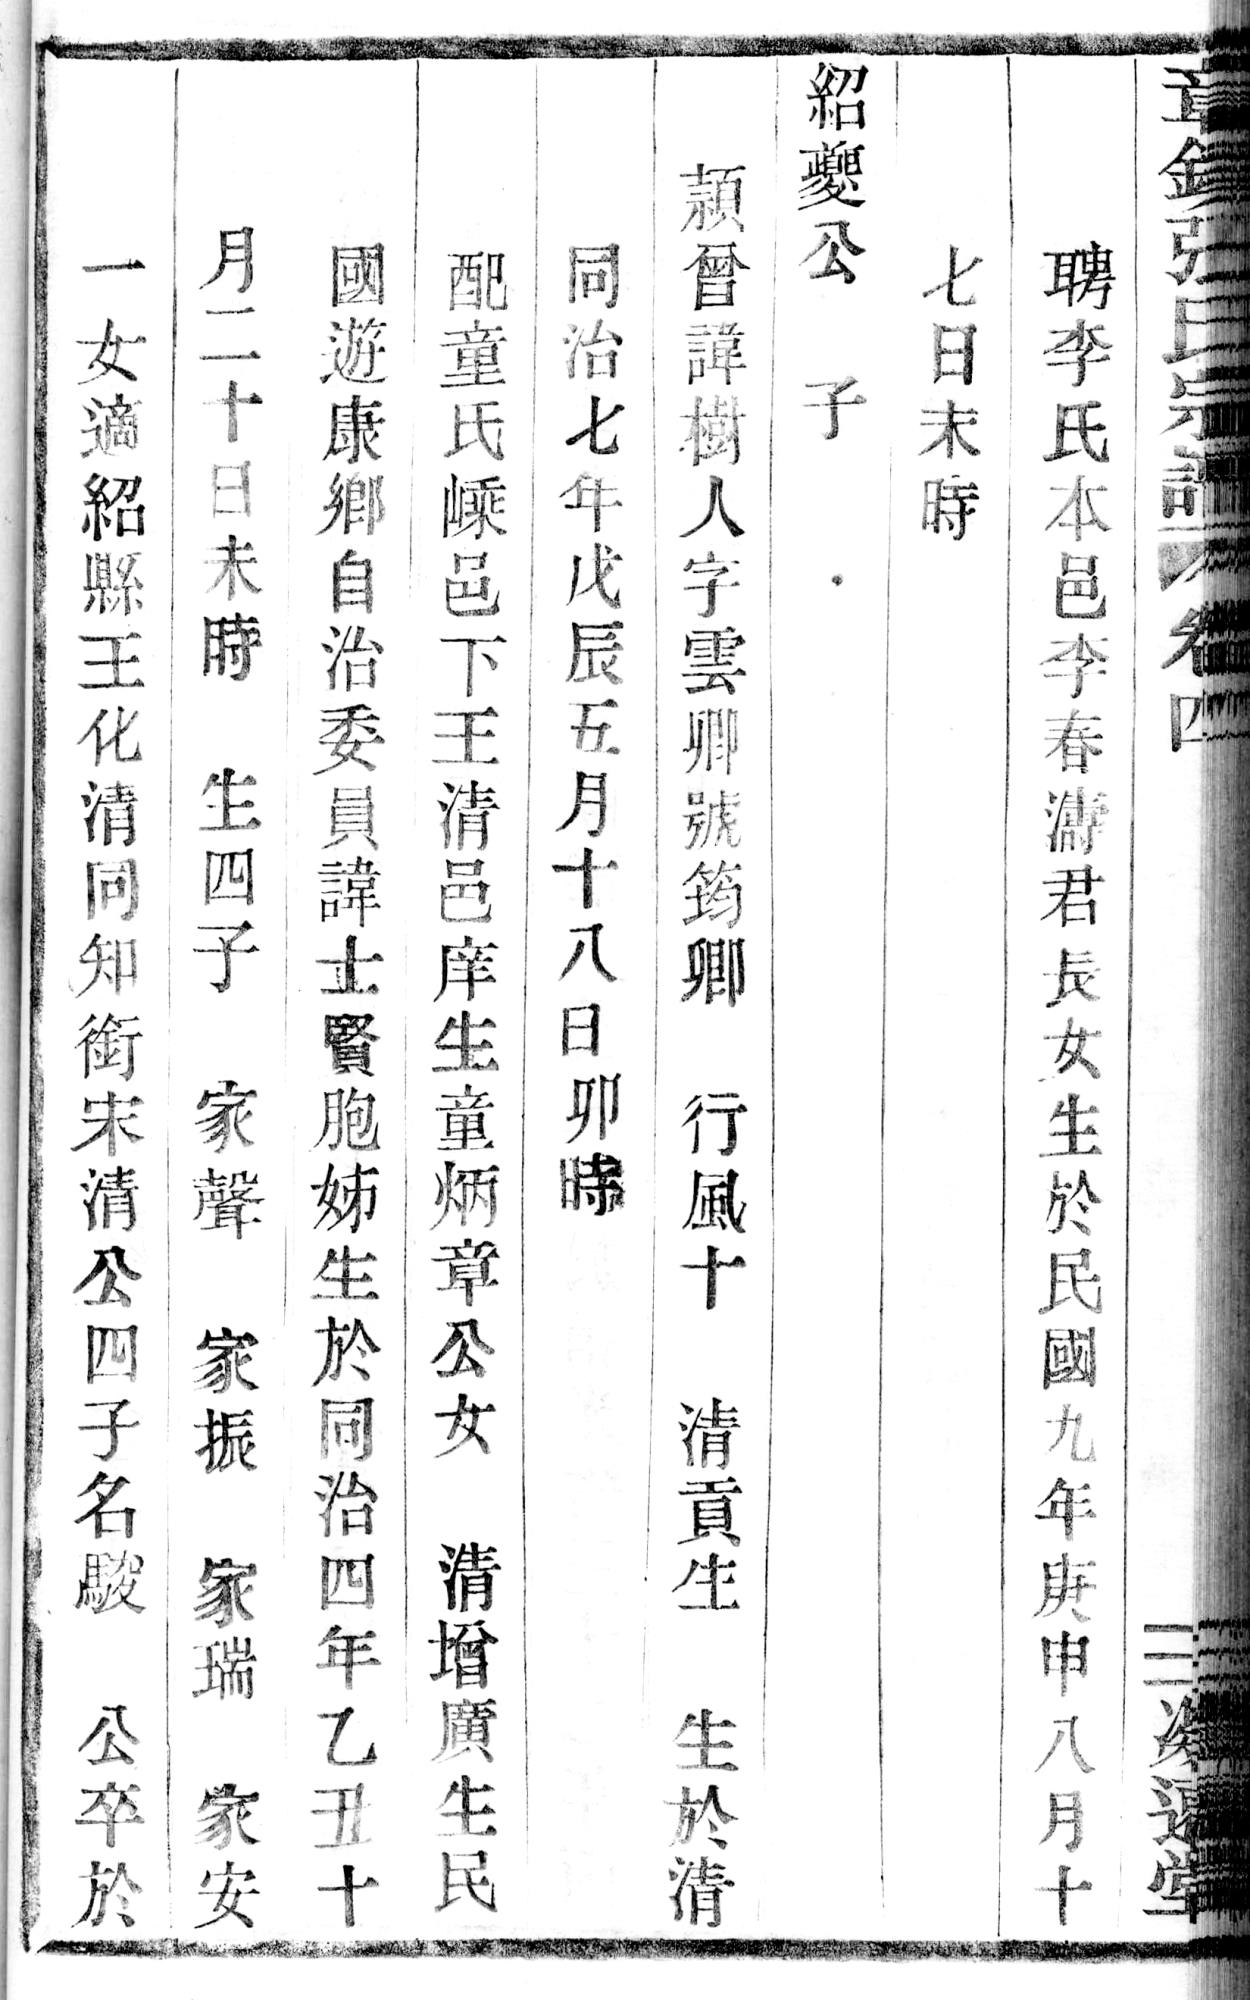 章鎮張氏宗譜 卷四 三 遺堂
聘李氏本邑李春濤君長女生於民國九年庚申八月十
七日未時
紹夔公 子
潁曾諱樹人字雲卿號筠卿 行風十 清貢生 生於清
同治七年戊辰五月十八日卯時
配童氏嵊邑下王清邑庠生童炳章公女 清增廣生民
國遊康鄉自治委員諱士賢胞姊生於同治四年乙丑十
月二十日未時 生四子 家聲 家振 家瑞 家安
一女適紹縣王化清同知銜宋清公四子名駿 公卒於